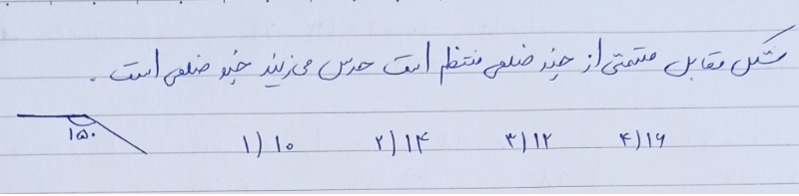 شکل مقابل قسمتی از چند ضلعی منتظم است حدس می‌زنید چند ضلعی است .
۱۵۰
۱) ۱۰ ۲) ۱۴ ۳) ۱۲ ۴) ۱۶